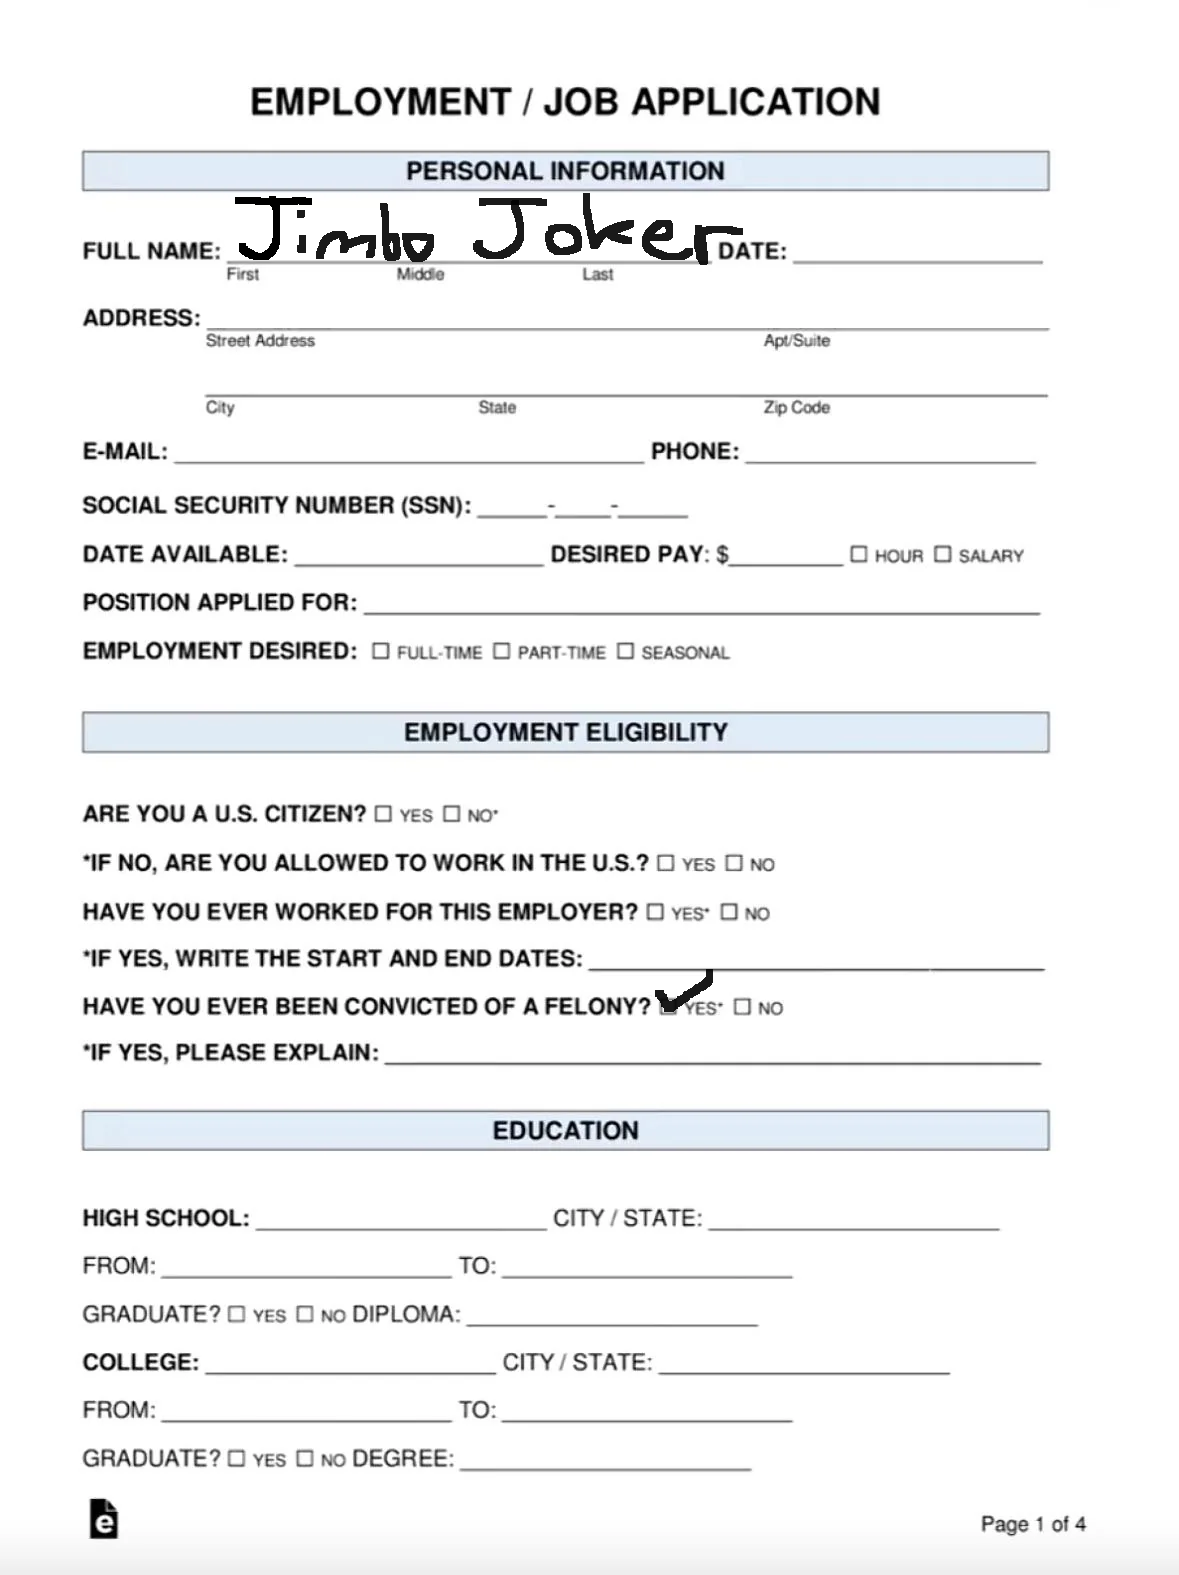 EMPLOYMENT / JOB APPLICATION
PERSONAL INFORMATION
FULL NAME: Jimbo Joker DATE: ____
First Middle Last
ADDRESS: ____
Street Address Apt/Suite
City State Zip Code
E-MAIL: ____ PHONE: ____
SOCIAL SECURITY NUMBER (SSN): ____-____-____
DATE AVAILABLE: ____ DESIRED PAY: $____ ☐ HOUR ☐ SALARY
POSITION APPLIED FOR: ____
EMPLOYMENT DESIRED: ☐ FULL-TIME ☐ PART-TIME ☐ SEASONAL
EMPLOYMENT ELIGIBILITY
ARE YOU A U.S. CITIZEN? ☐ YES ☐ NO*
*IF NO, ARE YOU ALLOWED TO WORK IN THE U.S.? ☐ YES ☐ NO
HAVE YOU EVER WORKED FOR THIS EMPLOYER? ☐ YES* ☐ NO
*IF YES, WRITE THE START AND END DATES: ____
HAVE YOU EVER BEEN CONVICTED OF A FELONY? ☑ YES* ☐ NO
*IF YES, PLEASE EXPLAIN: ____
EDUCATION
HIGH SCHOOL: ____ CITY / STATE: ____
FROM: ____ TO: ____
GRADUATE? ☐ YES ☐ NO DIPLOMA: ____
COLLEGE: ____ CITY / STATE: ____
FROM: ____ TO: ____
GRADUATE? ☐ YES ☐ NO DEGREE: ____
e Page 1 of 4